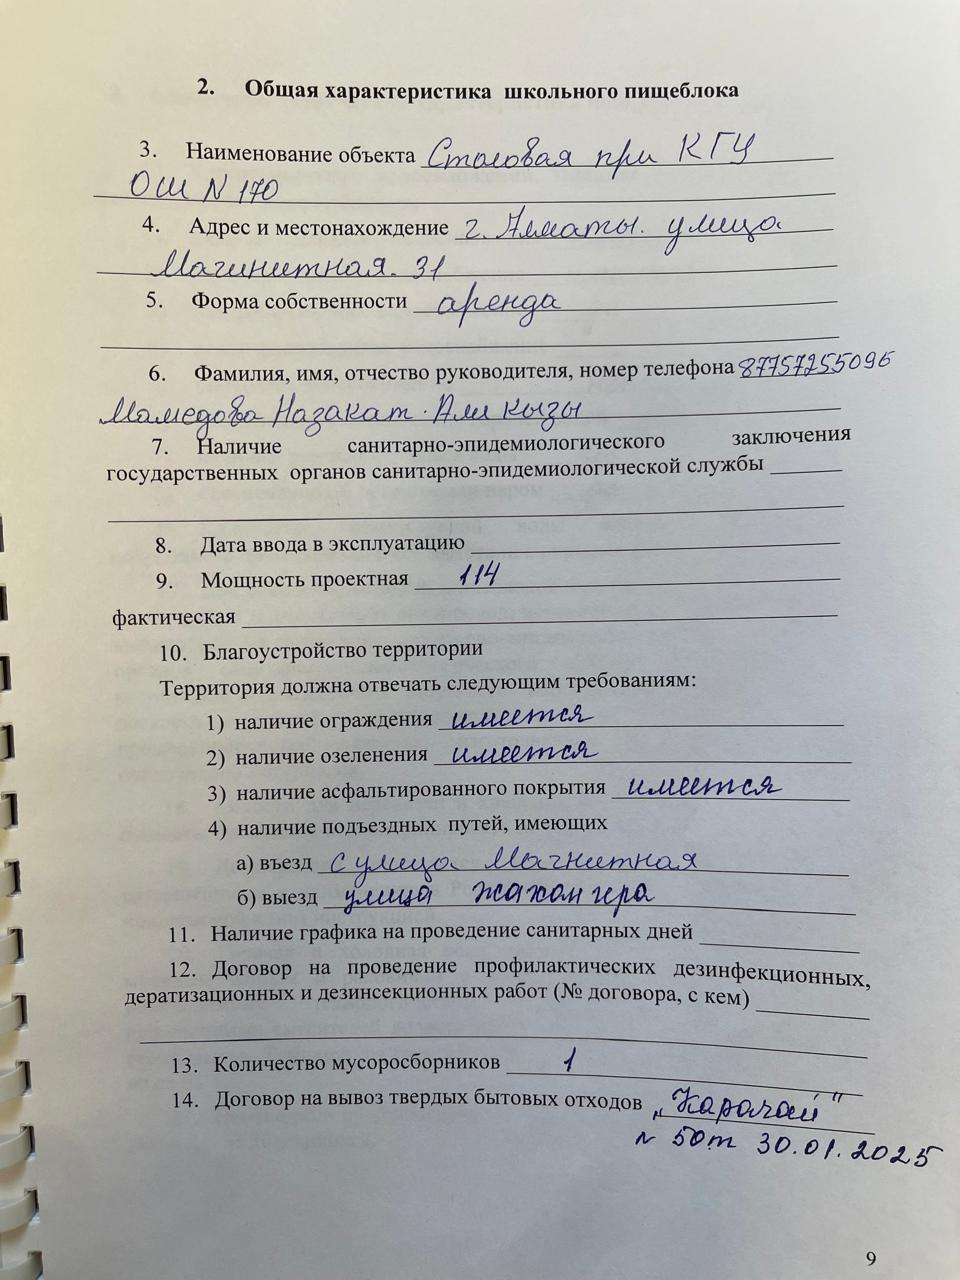 2. Общая характеристика школьного пищеблока
3. Наименование объекта Столовая при КГУ
ОШ N 170
4. Адрес и местонахождение г. Алматы. улица
Магинитная. 31
5. Форма собственности аренда
6. Фамилия, имя, отчество руководителя, номер телефона 87757255096
Мамедова Назакат. Али кызы
7. Наличие санитарно-эпидемиологического заключения
государственных органов санитарно-эпидемиологической службы
8. Дата ввода в эксплуатацию
9. Мощность проектная 114
фактическая
10. Благоустройство территории
Территория должна отвечать следующим требованиям:
1) наличие ограждения имеется
2) наличие озеленения имеется
3) наличие асфальтированного покрытия имеется
4) наличие подъездных путей, имеющих
а) въезд с улица Магнитная
б) выезд улица Жахангера
11. Наличие графика на проведение санитарных дней
12. Договор на проведение профилактических дезинфекционных,
дератизационных и дезинсекционных работ (№ договора, с кем)
13. Количество мусоросборников 1
14. Договор на вывоз твердых бытовых отходов „Карачай"
N 50т 30.01.2025
9